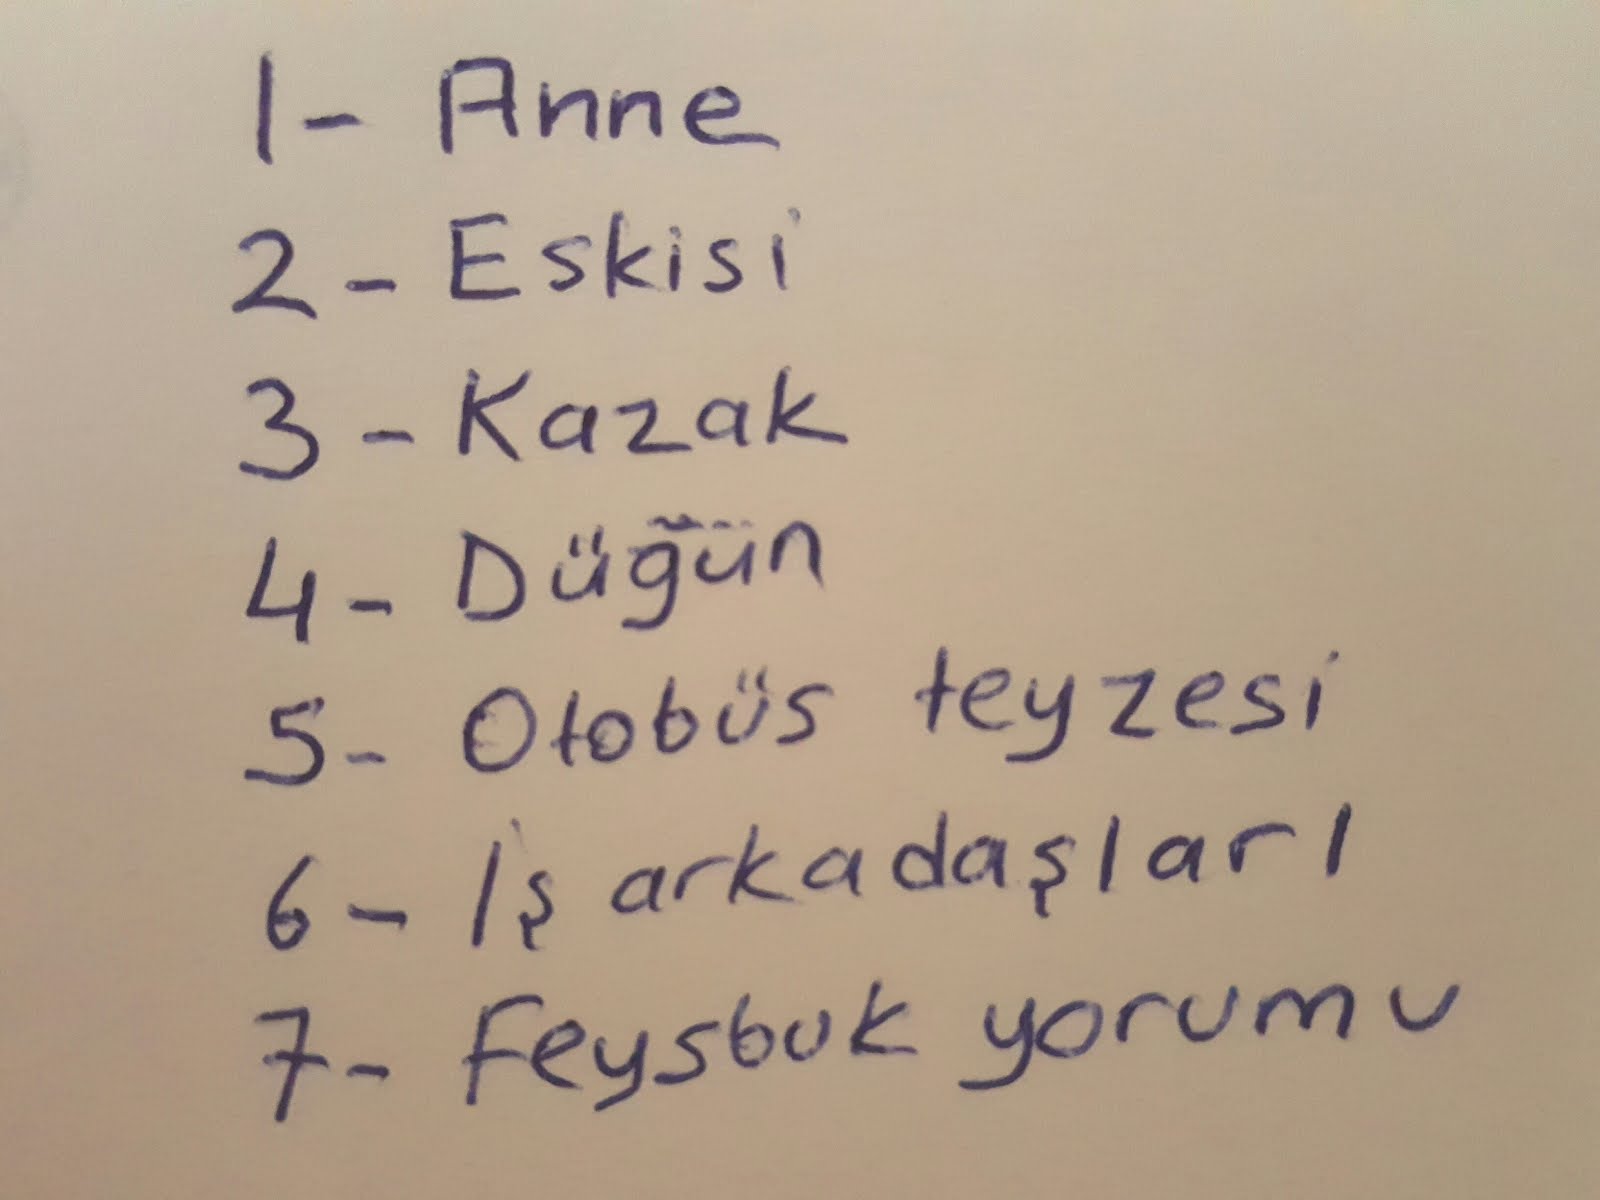 1- Anne
2- Eskisi
3- Kazak
4- Düğün
5- Otobüs teyzesi
6- İş arkadaşları
7- Feysbuk yorumu